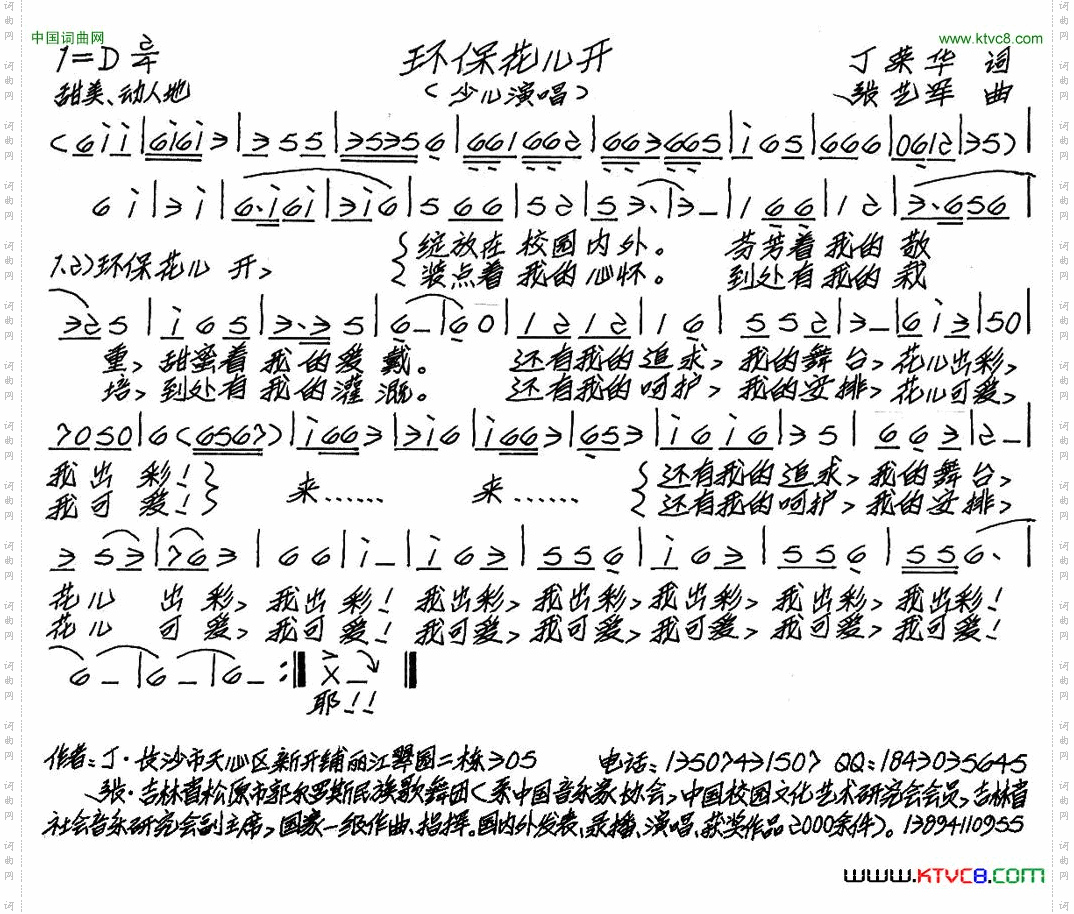 中国词曲网
www.ktvc8.com
1=D 2/4
环保花儿开
丁荣华 词
甜美、动人地
(少儿演唱)
张艺军 曲
(6 i i|6i6i 3|3 5 5|3535 6|661 662|663 665|i 6 5|6 6 6|0612|35)|
6 i|3 i|6·i 6i|3 i 6|5 6 6|5 2|5 3·|3 –|1 6 6|1 2|3·6 56|
绽放在 校园内外。 芬芳着 我的 敬
1.2)环保花儿 开,
装点着 我的 心怀。 到处有 我的 栽
3 2 5|i 6 5|3·3 5|6 –|6 0|1 2 1 2|1 6|5 5 2|3 –|6 i 3|5 0|
重, 甜蜜着 我 的 爱 戴。 还有我的 追求, 我的 舞 台, 花儿出彩,
培, 到处有 我 的 灌 溉。 还有我的 呵护, 我的 安排, 花儿可爱,
7 0 5 0|6 (6567)|i 66 3|3 i 6|i 66 3|6 5 3|i 6 i 6|3 5|6 6 3|2 –|
我 出 彩! 来…… 来…… 还有我的 追求, 我的 舞台,
我 可 爱! 还有我的 呵护, 我的 安排,
3 5 3|7 6 3|6 6|i –|i 6 3|5 5 6|i 6 3|5 5 6|5 5 6·|
花儿 出 彩, 我 出 彩! 我出彩, 我出彩, 我出彩, 我出彩, 我出彩!
花儿 可 爱, 我 可 爱! 我可爱, 我可爱, 我可爱, 我可爱, 我可爱!
6 –|6 –|6 – :‖ X – ‖
耶!!
作者:丁·长沙市天心区新开铺丽江翠园二栋305 电话:13507431507 QQ:1843035645
张·吉林省松原市郭尔罗斯民族歌舞团(系中国音乐家协会,中国校园文化艺术研究会会员,吉林省
社会音乐研究会副主席,国家一级作曲、指挥。国内外发表、录播、演唱、获奖作品2000余件)。13894110955
www.KTVC8.com